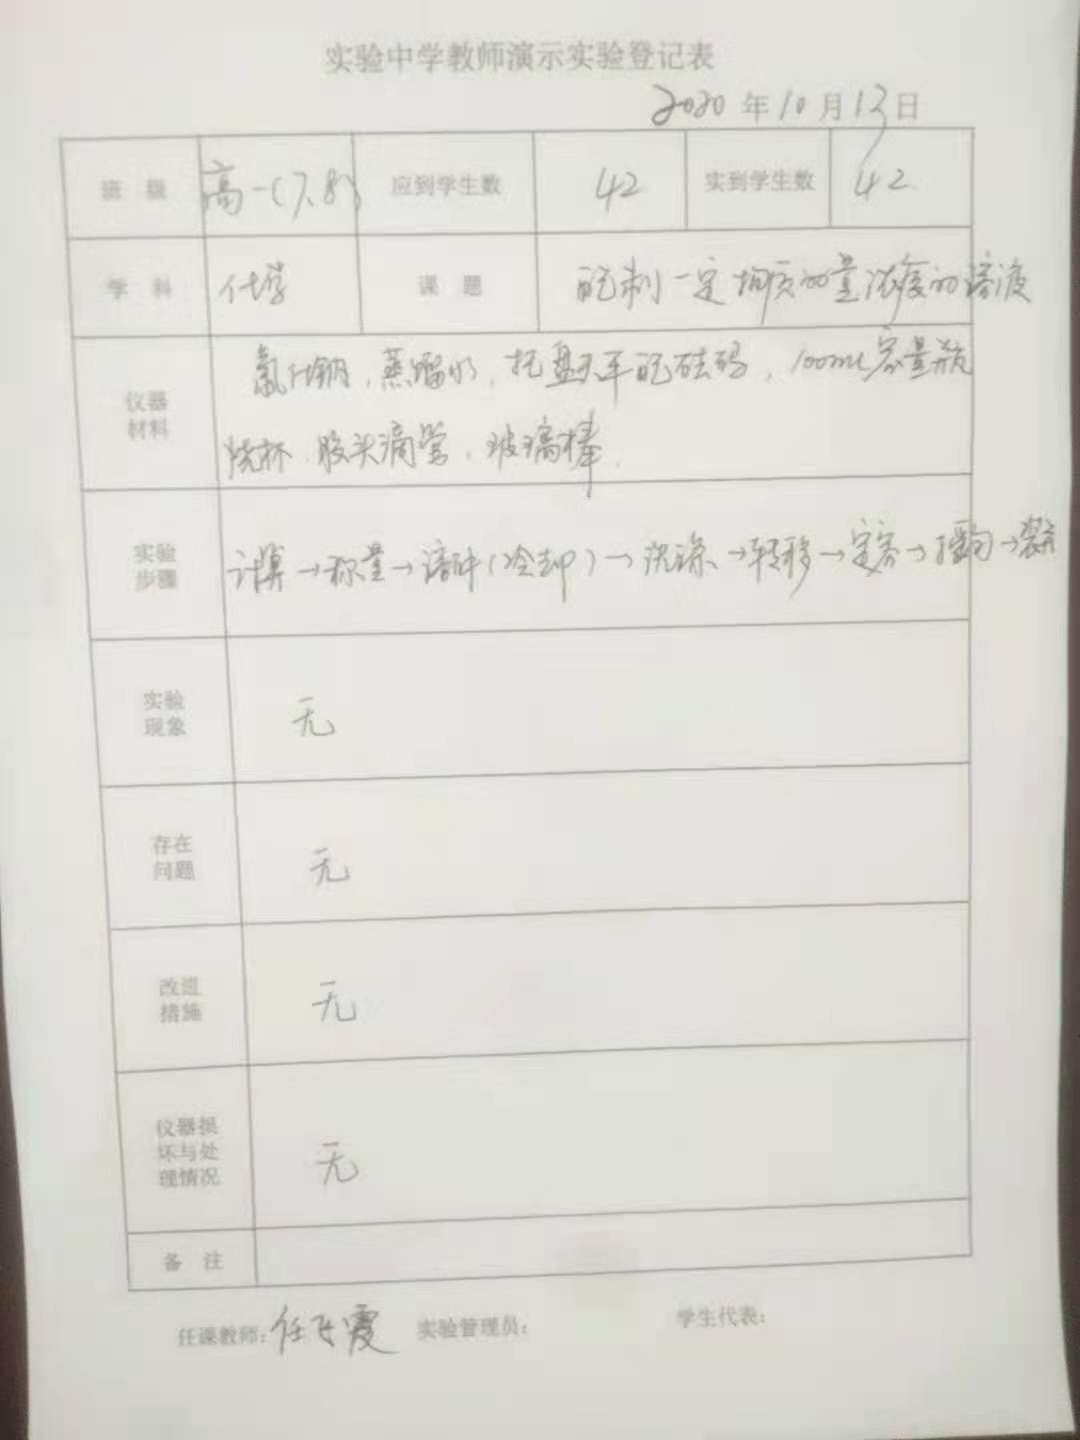 实验中学教师演示实验登记表
2020年10月13日
班 级 高一(7、8) 应到学生数 42 实到学生数 42
学 科 化学 课 题 配制一定物质的量浓度的溶液
仪器
材料
氯化钠,蒸馏水,托盘天平配砝码,100mL容量瓶
烧杯、胶头滴管、玻璃棒.
实验
步骤
计算→称量→溶解(冷却)→洗涤→转移→定容→摇匀→装瓶
实验
现象
无
存在
问题
无
改进
措施
无
仪器损
坏与处
理情况
无
备 注
任课教师:任飞霞 实验管理员: 学生代表: